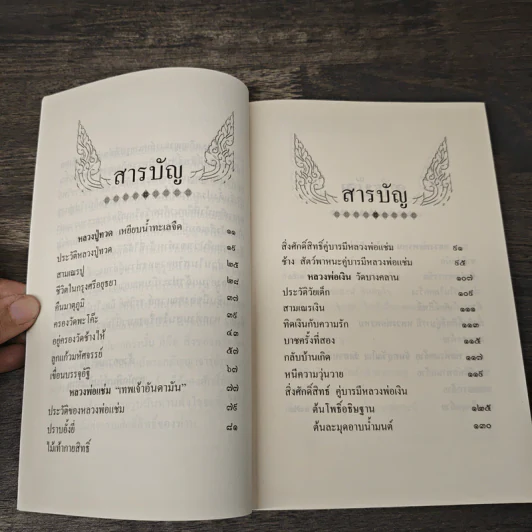 สารบัญ
หลวงปู่ทวด เหยียบน้ำทะเลจืด ๑๑
ประวัติหลวงปู่ทวด ๑๙
สามเณรปู ๒๕
ชีวิตในกรุงศรีอยุธยา ๒๘
คืนมาตุภูมิ ๓๗
ครองวัดพะโค๊ะ ๓๙
อยู่ครองวัดช้างให้ ๔๓
ลูกแก้วมหัศจรรย์ ๕๗
เขื่อนบรรจุอัฐิ ๖๗
หลวงพ่อแช่ม "เทพเจ้าอันดามัน" ๗๗
ประวัติของหลวงพ่อแช่ม ๗๙
ปราบอั้งยี่ ๘๑
ไม้เท้ากายสิทธิ์
สารบัญ
สิ่งศักดิ์สิทธิ์คู่บารมีหลวงพ่อแช่ม ๙๑
ช้าง สัตว์พาหนะคู่บารมีหลวงพ่อแช่ม ๙๕
หลวงพ่อเงิน วัดบางคลาน ๑๐๗
ประวัติวัยเด็ก ๑๐๙
สามเณรเงิน ๑๑๑
ทิดเงินกับความรัก ๑๑๓
บวชครั้งที่สอง ๑๑๕
กลับบ้านเกิด ๑๑๗
หนีความวุ่นวาย ๑๑๙
สิ่งศักดิ์สิทธิ์ คู่บารมีหลวงพ่อเงิน
ต้นโพธิ์อธิษฐาน ๑๒๕
ต้นละมุดอาบน้ำมนต์ ๑๓๐